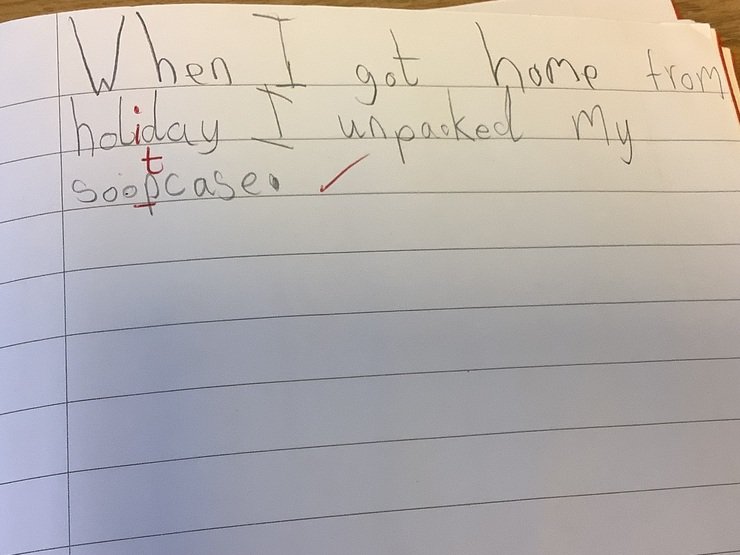 When I got home from
holiday I unpacked my
t
soopcase. ✓